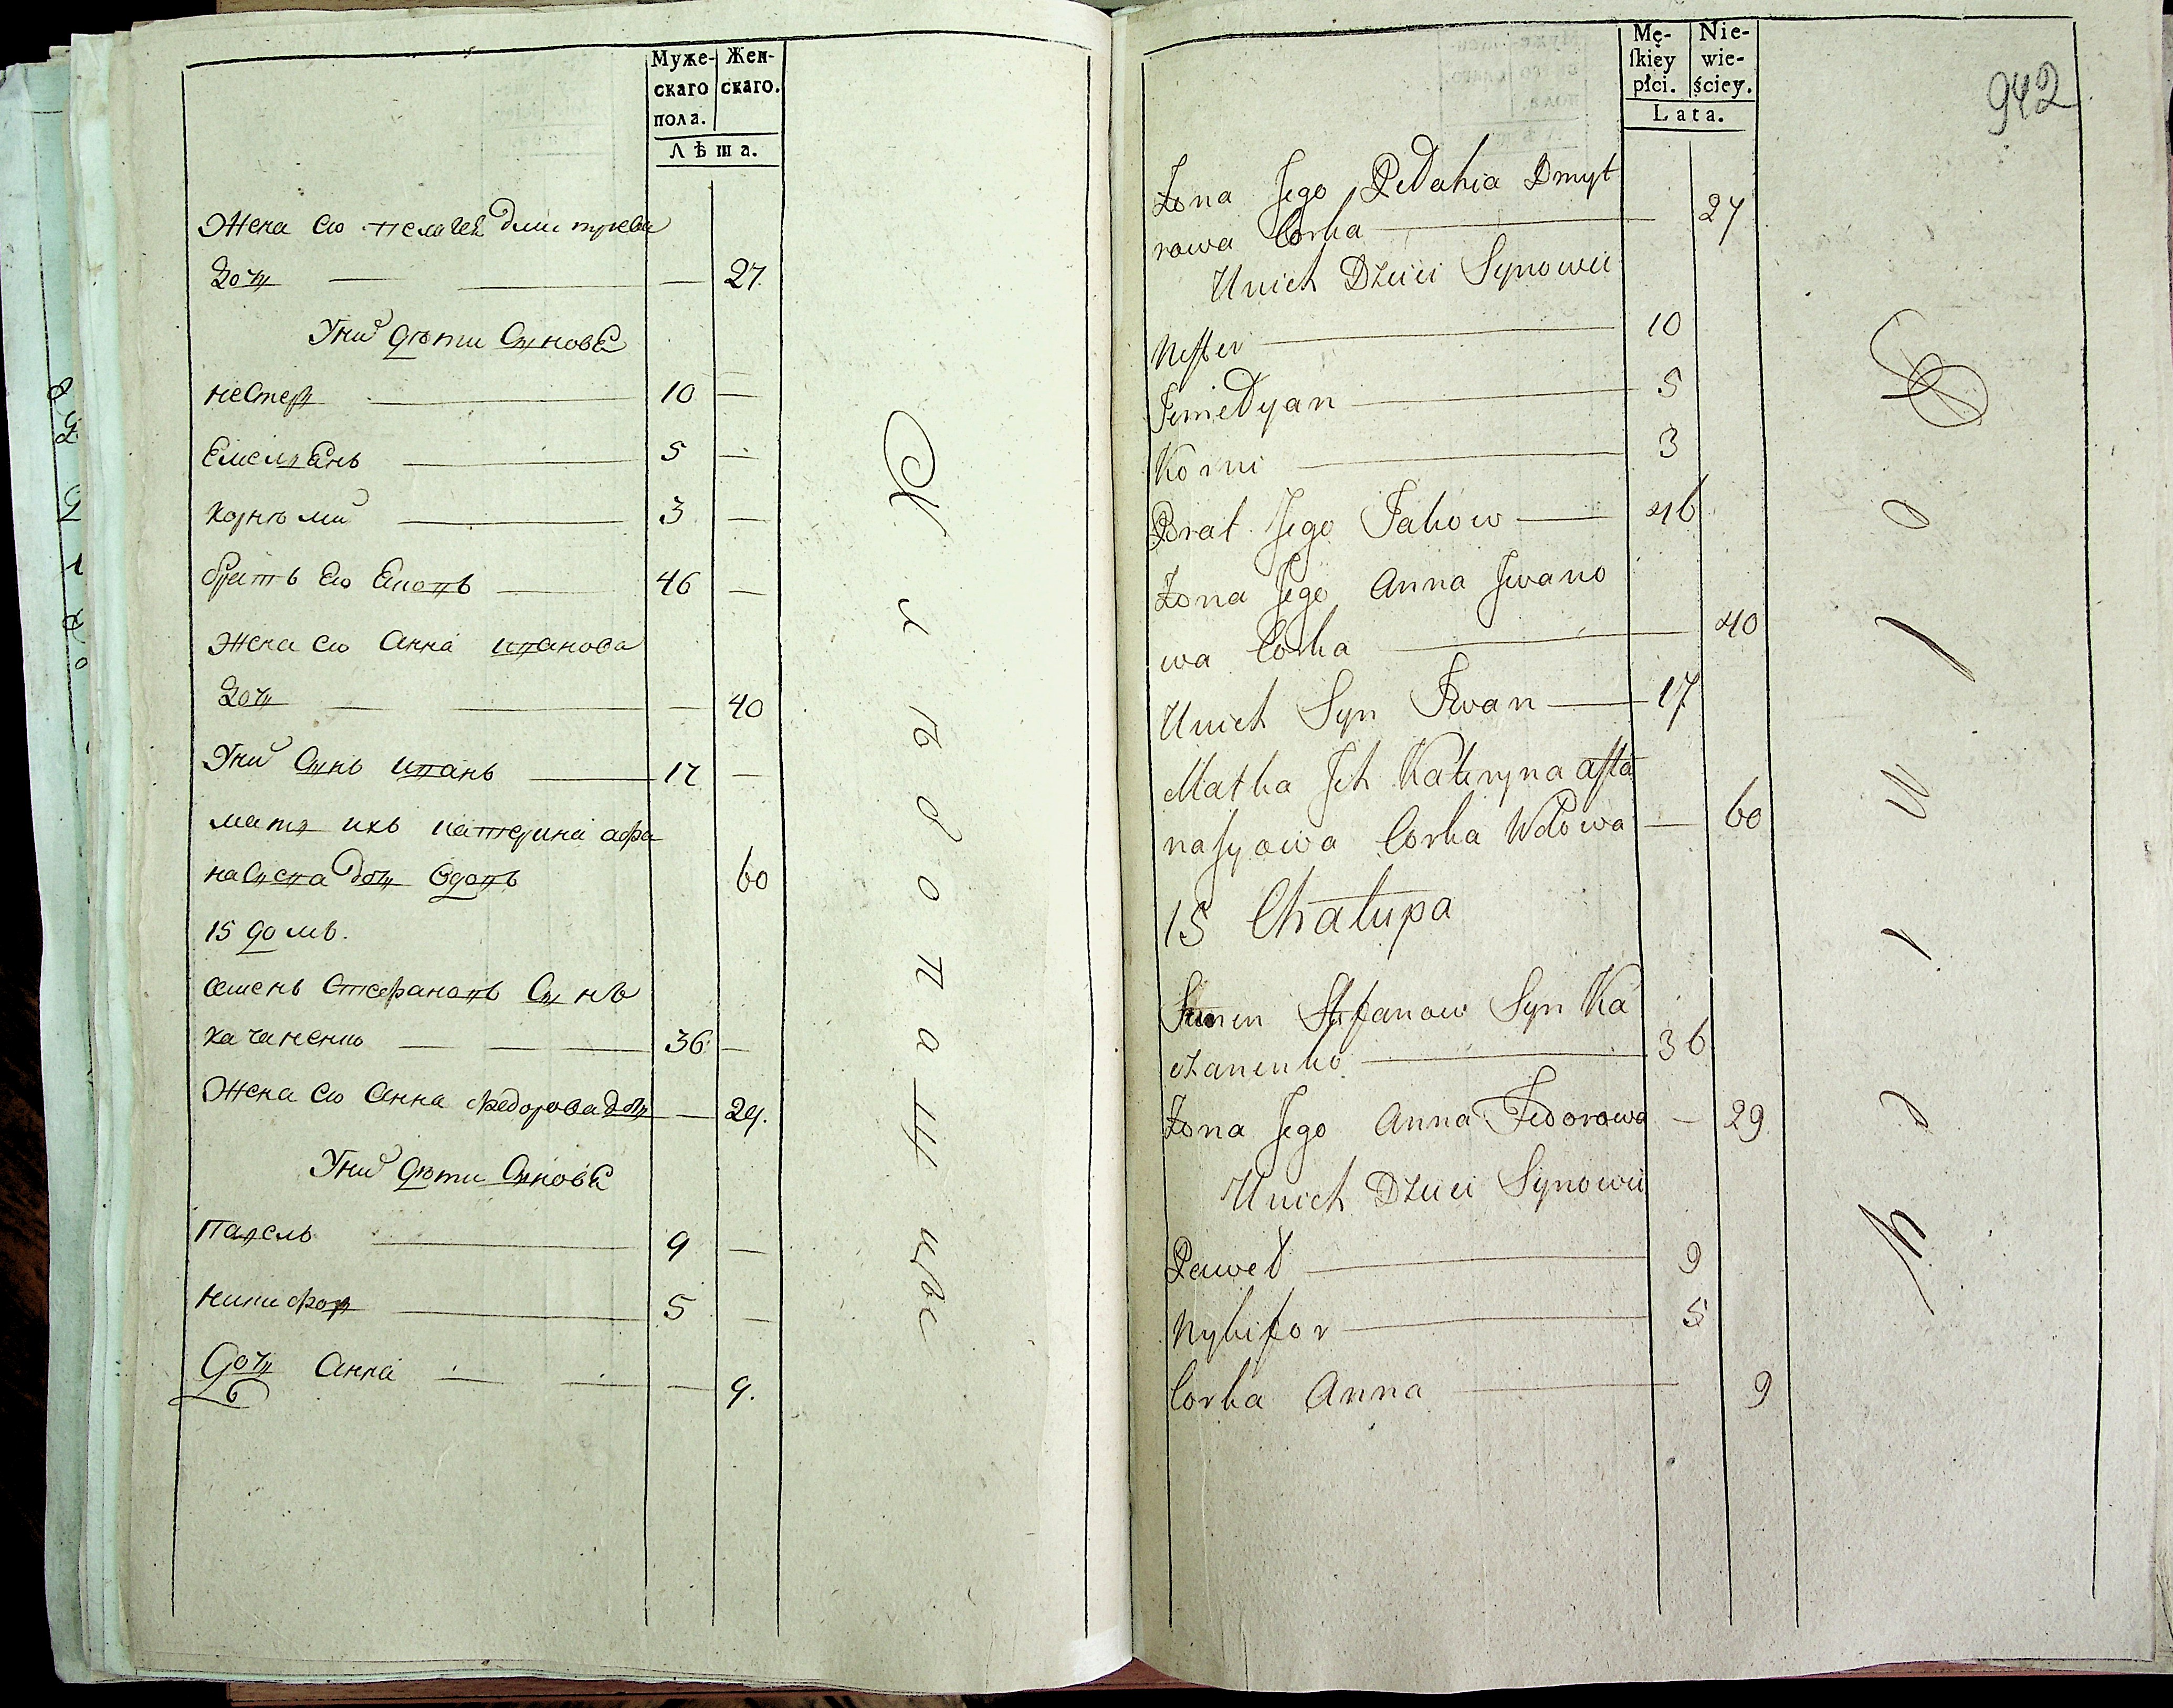 Муже- Жен-
скаго скаго.
пола.
Лѣта.
Жена его пелагея дмитрова
дочь — 27.
Уних дѣти Сынове
нестер — 10 —
Емельянъ — 5 —
Корнѣй — 3 —
братъ Его Яковъ — 46 —
Жена его Анна иванова
дочь — 40
Уних Сынъ иванъ — 17 —
мать ихъ катерина афа
насиева дочь вдова 60
15 домъ.
семенъ Стефановъ Сынъ
каченко — 36 —
Жена его Анна федорова дочь — 29.
Уних дѣти Сынове
павелъ — 9 —
никифор — 5 —
дочь Анна — 9.
Mę- Nie-
ſkiey wie-
płci. ściey.
Lata.
942
Żona Jego Pelahia Dmyt
rowa Corka — 27
Unich Dzieci Synowie
Nester — 10
Jemelyan — 5
Korni — 3
Brat Jego Jakow — 46
Żona Jego Anna Jwano
wa Corka — 40
Unich Syn Jwan — 17
Matka Jch Kateryna Afta
nasyowa Corka Wdowa — 60
15 Chałupa
Semen Stefanow Syn Ka
czanenko — 36
Żona Jego Anna Fedorowa — 29
Unich Dzieci Synowie
Paweł — 9
Nykifor — 5
Corka Anna — 9